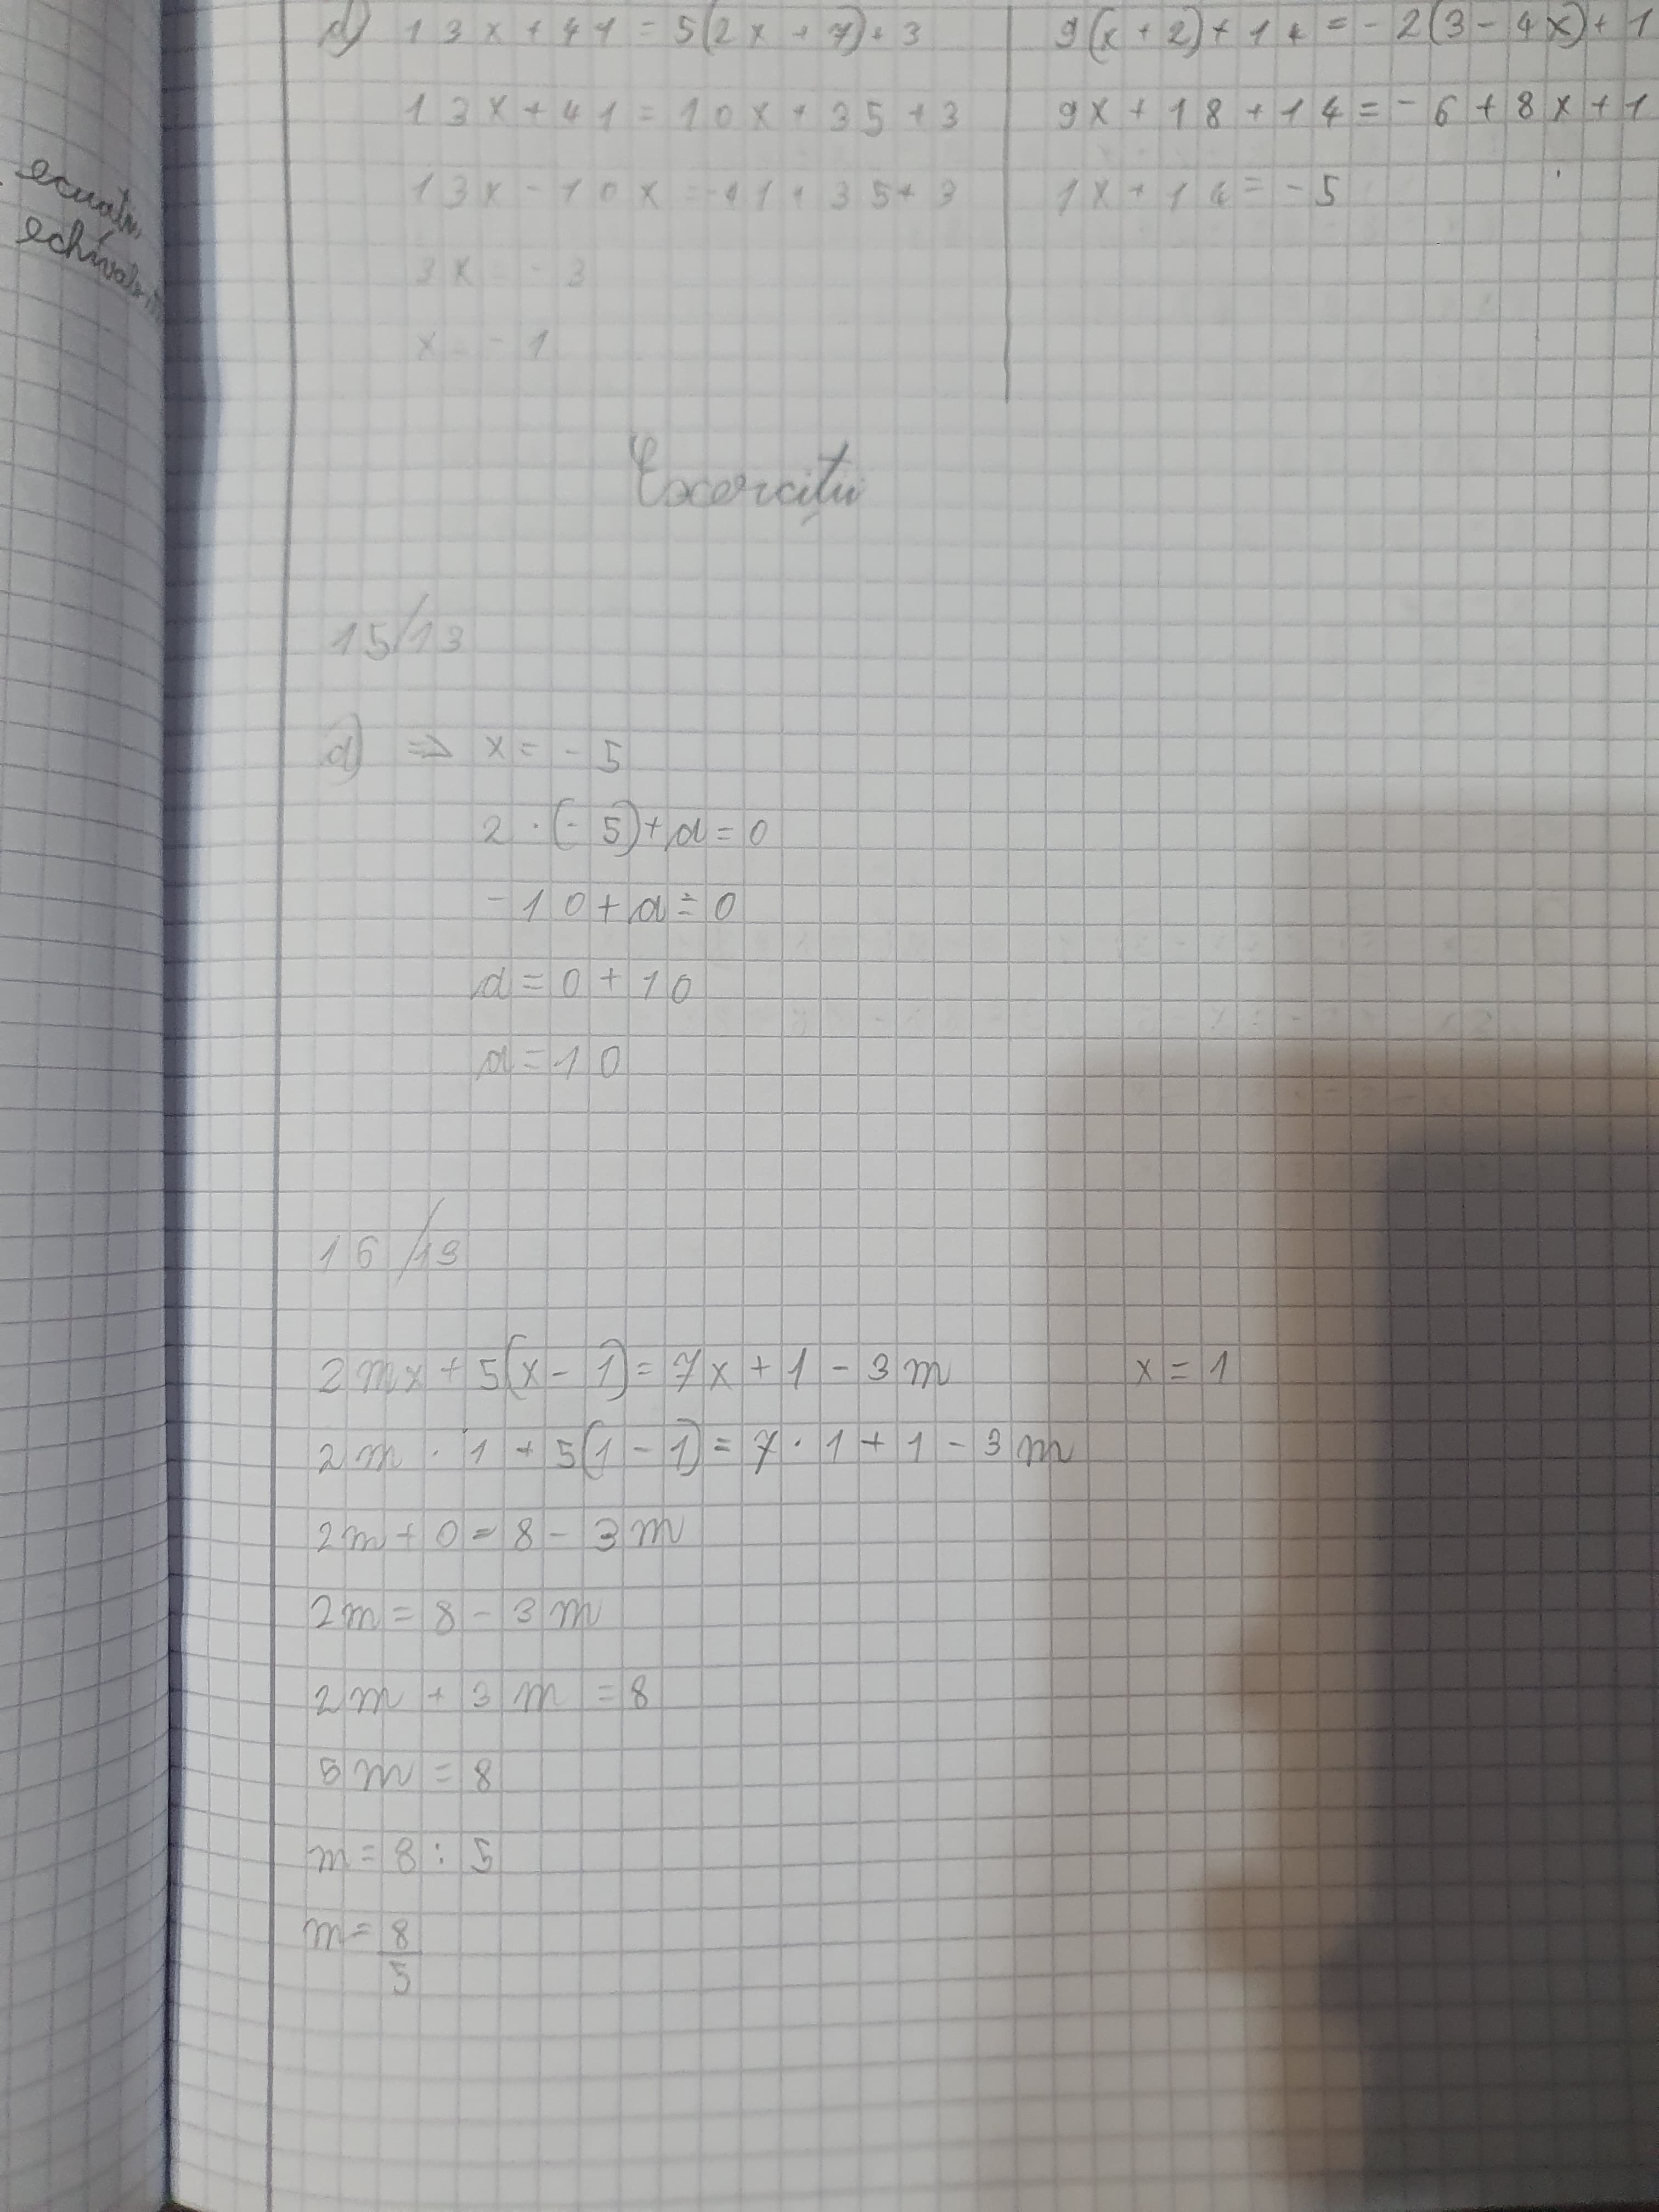 ecuații
echivalente
d) 13x + 41 = 5(2x + 7) + 3
13x + 41 = 10x + 35 + 3
13x - 10x = -41 + 35 + 3
3x = -3
x = -1
9(x + 2) + 14 = -2(3 - 4x) + 1
9x + 18 + 14 = -6 + 8x + 1
1x + 14 = -5
Exerciții
15/13
a) ⇒ x = -5
2 · (-5) + a = 0
-10 + a = 0
a = 0 + 10
a = 10
16/13
2mx + 5(x - 1) = 7x + 1 - 3m x = 1
2m · 1 + 5(1 - 1) = 7 · 1 + 1 - 3m
2m + 0 = 8 - 3m
2m = 8 - 3m
2m + 3m = 8
5m = 8
m = 8 : 5
m = 8/5